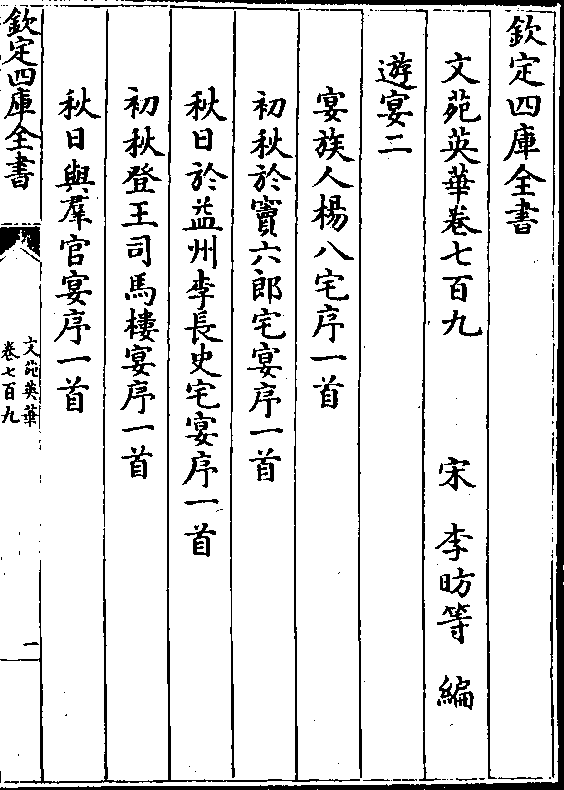 欽定四庫全書
文苑英華卷七百九　宋　李昉等　編
遊宴二
宴族人楊八宅序一首
初秋於竇六郎宅宴序一首
秋日於益州李長史宅宴序一首
初秋登王司馬樓宴序一首
秋日與羣官宴序一首
欽定四庫全書
文苑英華
卷七百九
一